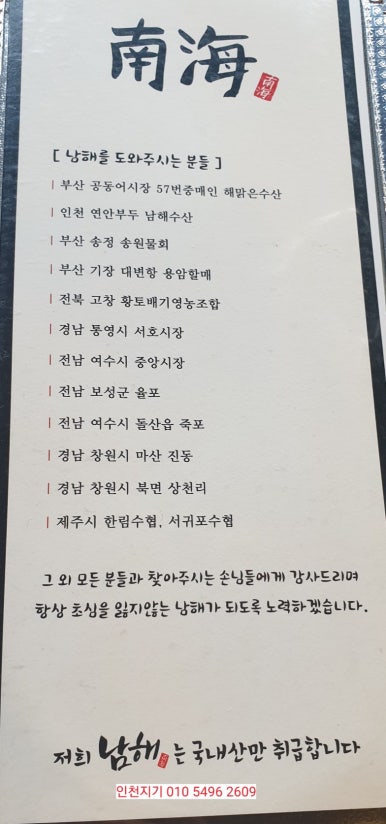 南海
南海
[ 남해를 도와주시는 분들 ]
| 부산 공동어시장 57번중매인 해맑은수산
| 인천 연안부두 남해수산
| 부산 송정 송원물회
| 부산 기장 대변항 용암할매
| 전북 고창 황토배기영농조합
| 경남 통영시 서호시장
| 전남 여수시 중앙시장
| 전남 보성군 율포
| 전남 여수시 돌산읍 죽포
| 경남 창원시 마산 진동
| 경남 창원시 북면 상천리
| 제주시 한림수협, 서귀포수협
그 외 모든 분들과 찾아주시는 손님들에게 감사드리며
항상 초심을 잃지않는 남해가 되도록 노력하겠습니다.
저희 남해는 국내산만 취급합니다
인천지기 010 5496 2609